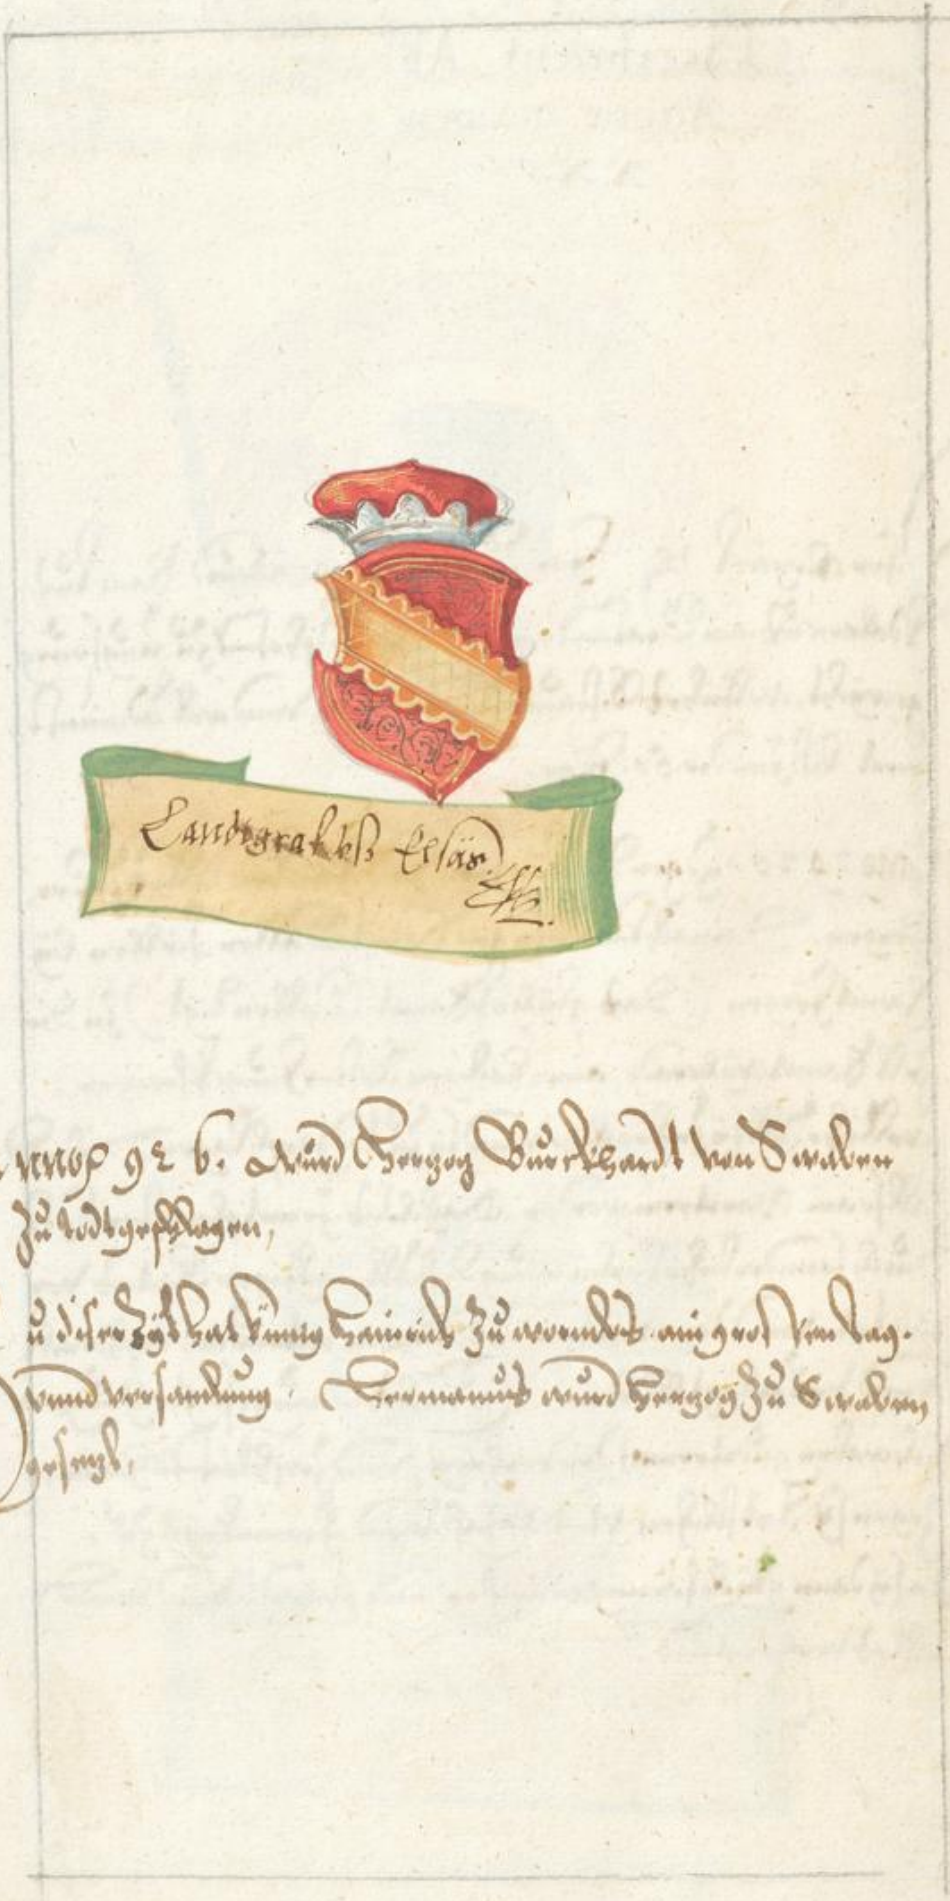 Landtgraf deß Elsäs.
nno 926. Wurd Hertzog Burckhardt von Swaben
Zu todt geschlagen,
u diser Zyt hat künig Heinrich Zu wormbs ain grossen tag.
vnnd versamlung. Hermanus wurd Hertzog Zu Swaben
gesetzt,